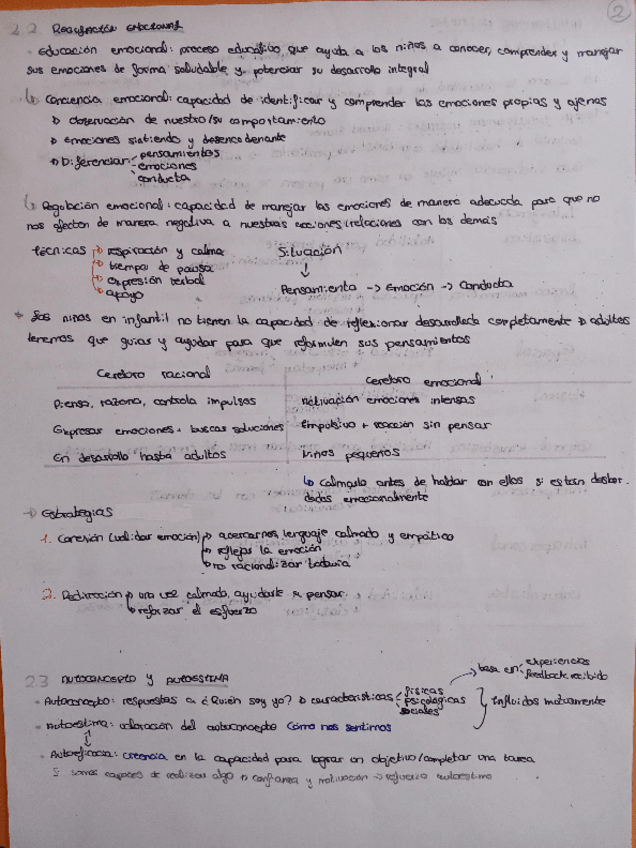 2
2.2 Regulación emocional
- Educación emocional: proceso educativo que ayuda a los niños a conocer, comprender y manejar
sus emociones de forma saludable y potenciar su desarrollo integral
↳ Conciencia emocional: capacidad de identificar y comprender las emociones propias y ajenas
→ observación de nuestro/su comportamiento
→ Emociones sintiendo y desencadenante
→ Diferenciar - pensamientos
- emociones
- conducta
↳ Regulación emocional: capacidad de manejar las emociones de manera adecuada para que no
nos afecten de manera negativa a nuestras acciones/relaciones con los demás
Técnicas → respiración y calma
→ tiempo de pausa
→ expresión verbal
→ apoyo
Situación
↓
Pensamiento -> Emoción -> Conducta
* Los niños en infantil no tienen la capacidad de reflexionar desarrollada completamente → adultos
tenemos que guiar y ayudar para que reformulen sus pensamientos
Cerebro racional | Cerebro emocional
Piensa, razona, controla impulsos | Activación emociones intensas
Expresar emociones + buscar soluciones | Impulsivo + reacción sin pensar
En desarrollo hasta adultos | Niños pequeños
↳ Calmarlo antes de hablar con ellos si están desbor-
dados emocionalmente
→ Estrategias
1. Conexión (validar emoción) → acercarnos, lenguaje calmado y empático
→ reflejar la emoción
→ no racionalizar todavía
2. Redirección → una vez calmado, ayudarle a pensar
→ reforzar el esfuerzo
2.3 Autoconcepto y autoestima
→ basa en - experiencias
- feedback recibido
- Autoconcepto: respuestas a ¿Quién soy yo? → características - físicas
- psicológicas
- sociales
} Influidos mutuamente
- Autoestima: valoración del autoconcepto Cómo nos sentimos
↕
- Autoeficacia: creencia en la capacidad para lograr un objetivo/completar una tarea
Si somos capaces de realizar algo → confianza y motivación → refuerzo autoestima